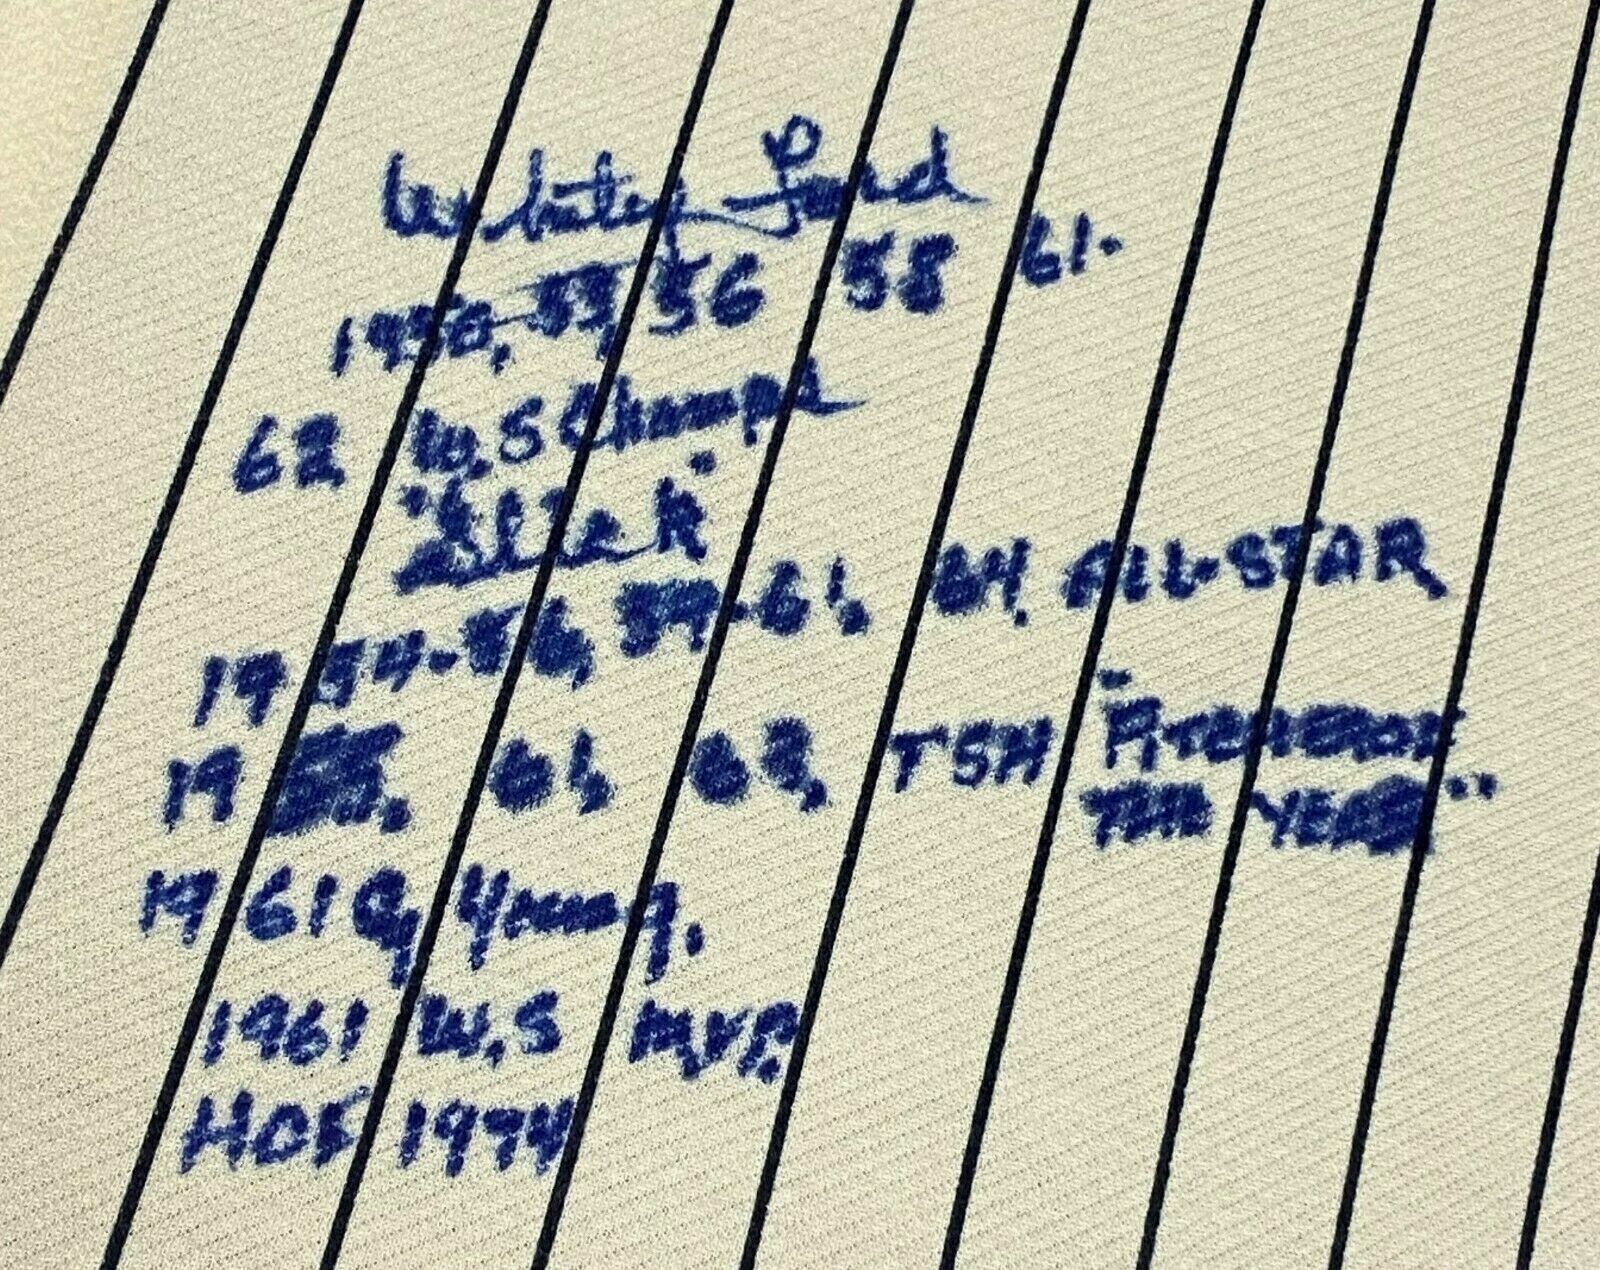 Whitey Ford
1950, 53, 56 58 61.
62 W.S Champs
"Slick"
1954-56, 59-61, 64, ALL-STAR
19 61, 63, TSN "PITCHER OF
THE YEAR"
1961 Cy Young.
1961 W.S MVP.
HOF 1974